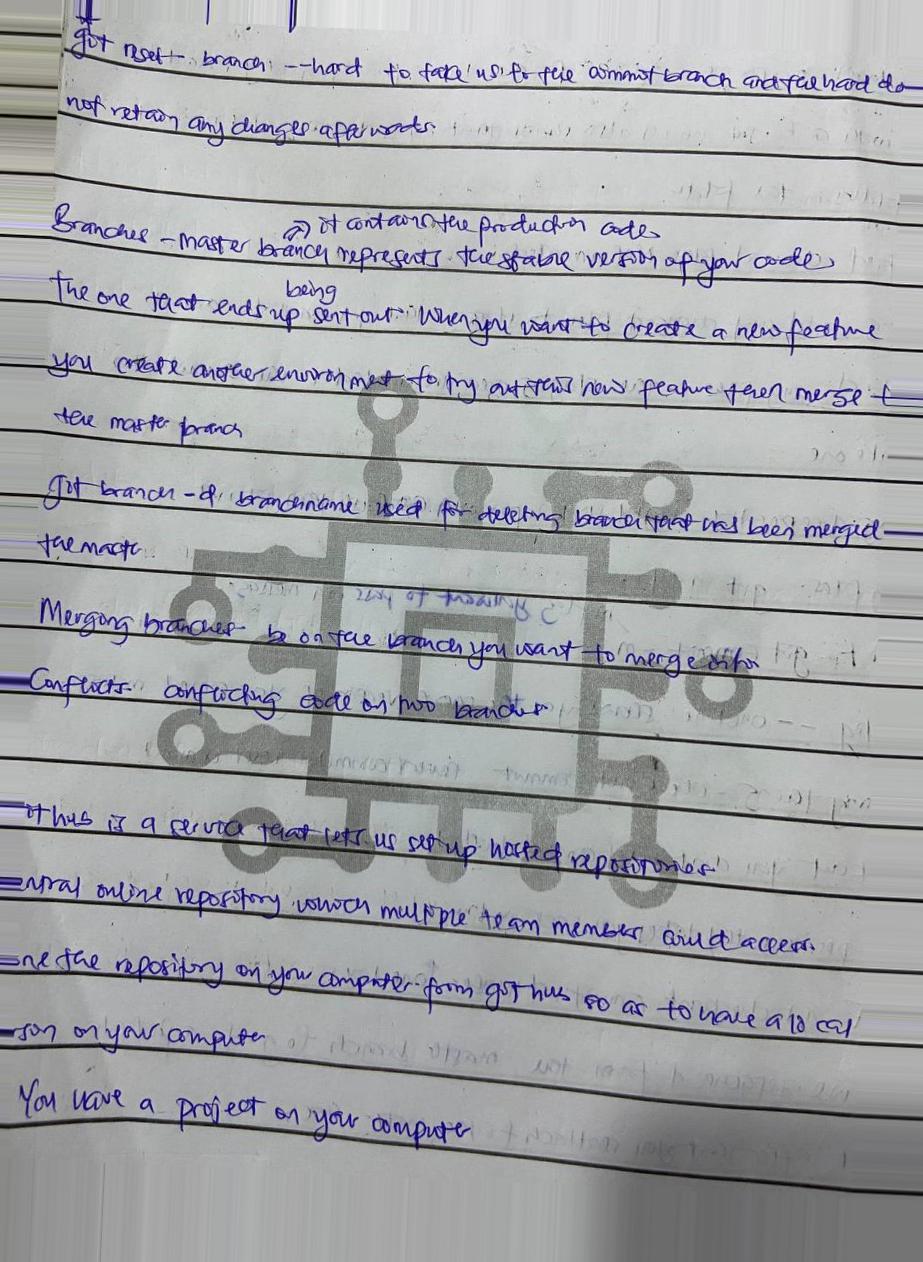 git reset branch --hard to take us to the commit branch and the hard do
not retain any changes afterwards.
it contains the production code
Branches - master branch represents the stable version of your code
being
The one that ends up sent out. When you want to create a new feature
you create another environment to try out this new feature then merge t
the master branch
git branch -d branchname used for deleting branch that has been merged
the master
Merging branches be on the branch you want to merge onto
Conflicts conflicting code on two branches
ithub is a service that lets us set up hosted repositories
ntral online repository which multiple team members could access.
ne the repository on your computer from github so as to have a local
sion on your computer
You have a project on your computer